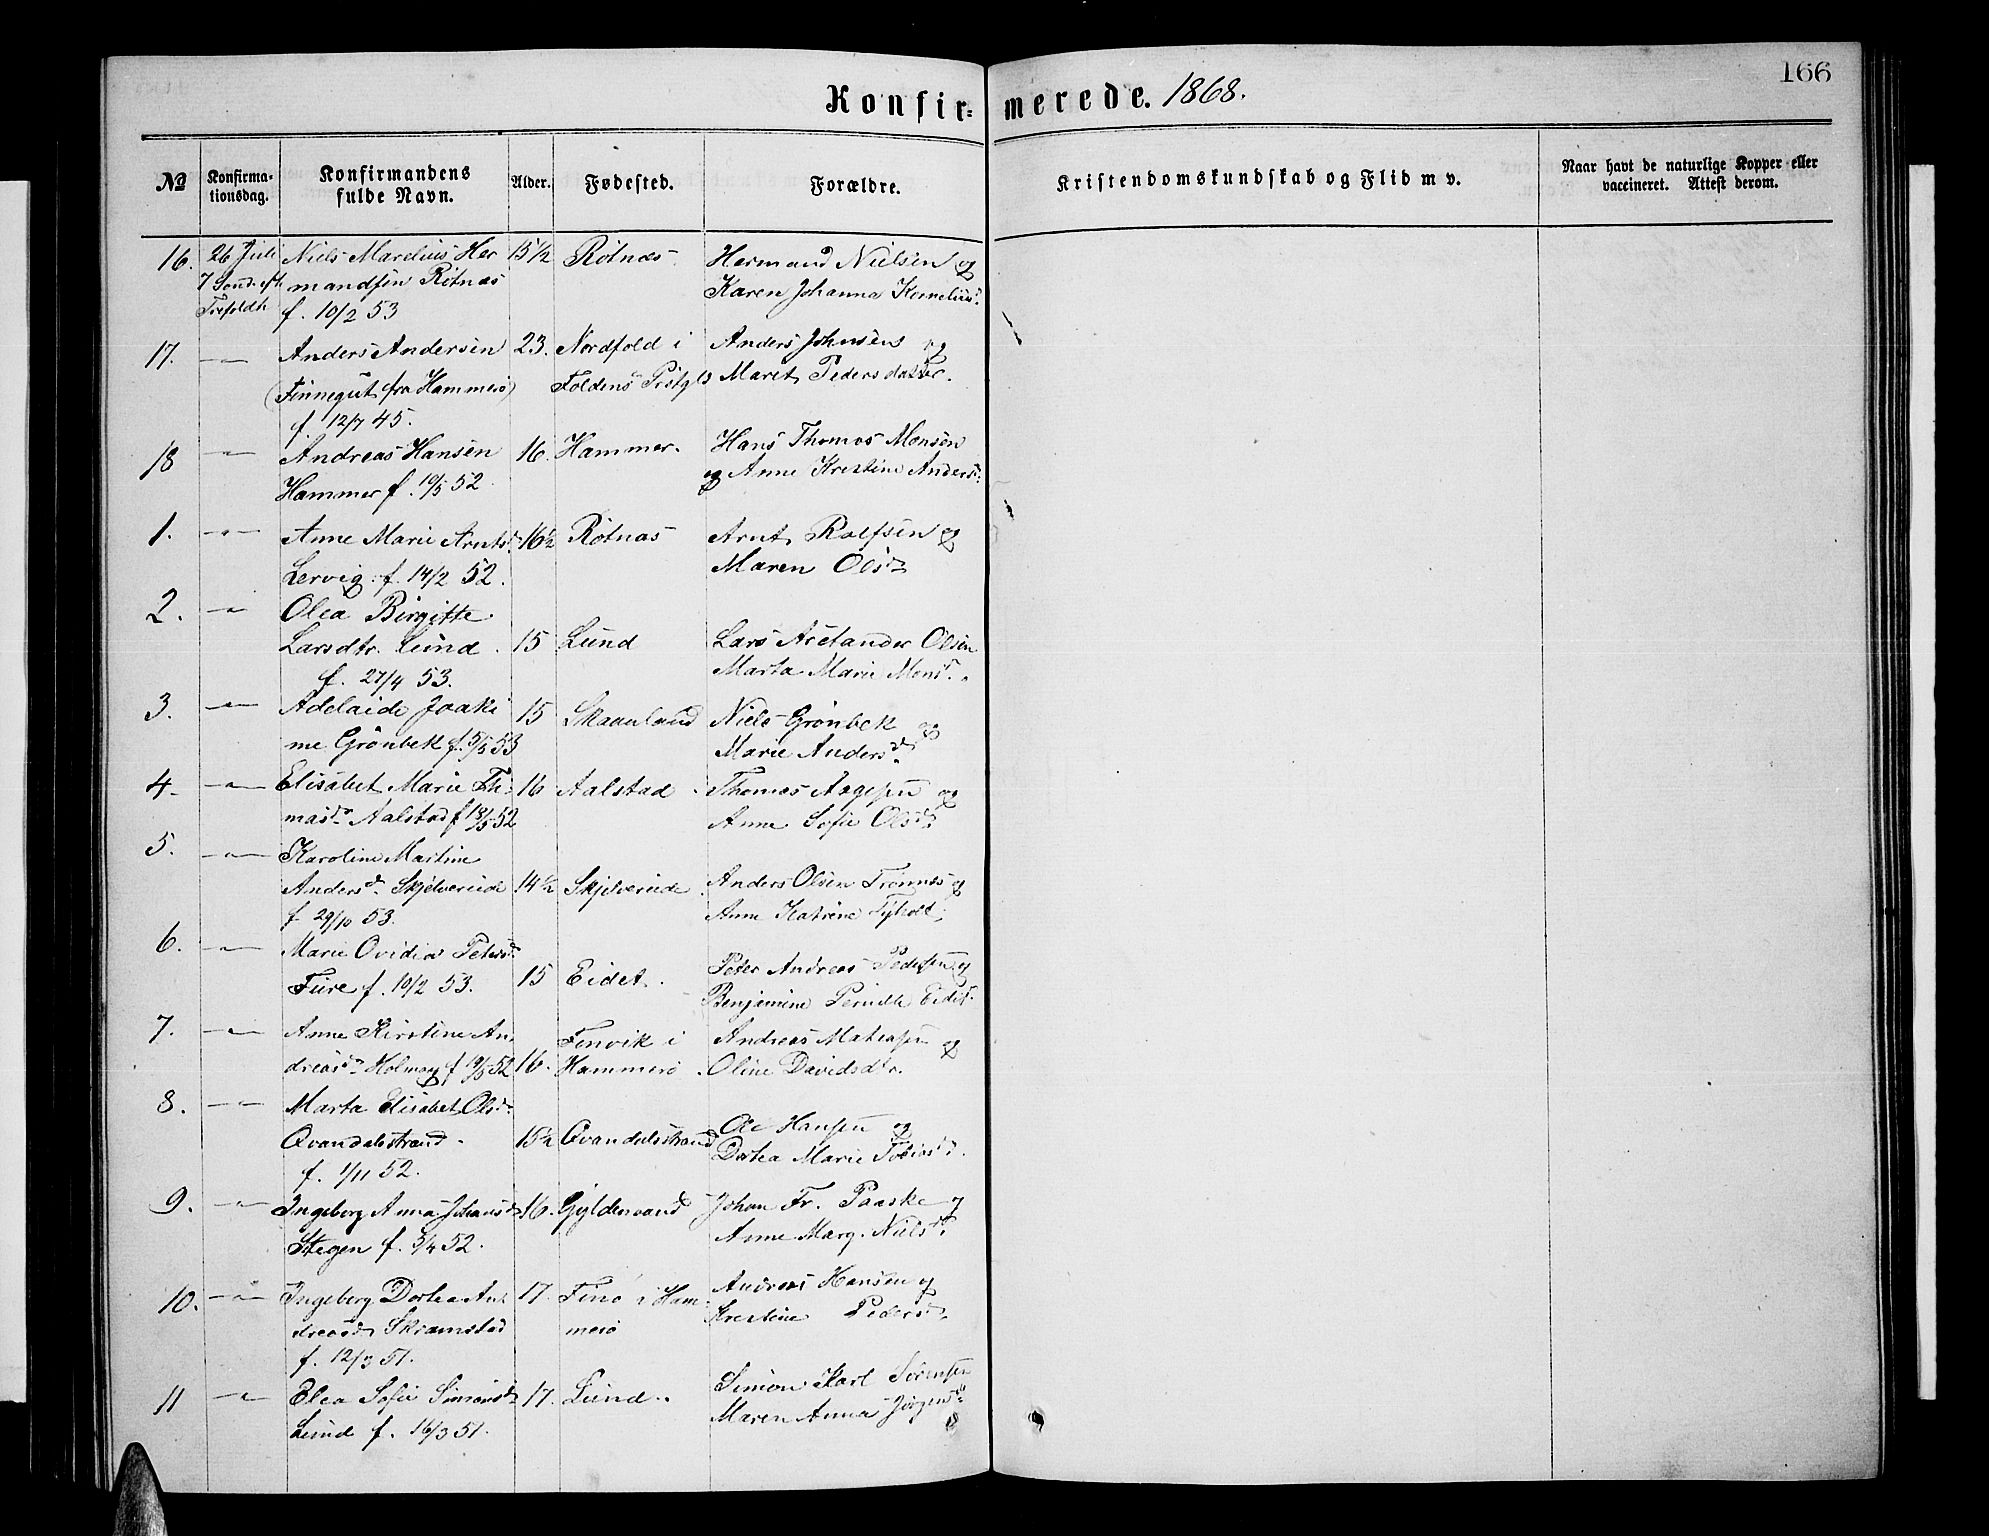 166
Konfir=
merede. 1868.
No
Konfirma-
tionsdag.
Konfirmandens
fulde Navn.
Alder.
Fødested.
Forældre.
Kristendomskundskab og Flid m v.
Naar havt de naturlige Kopper eller
vaccineret. Attest derom.
16. 26 Juli Niels Marelius Her 15 1/2 Rotnæs Hermand Nielsen og
7 Sønd. eft mandsen Rotnæs Karen Johanna Kornelius
Trefoldh f. 10/2 53
17. — " — Anders Andersen 23. Nordfold i Anders Johnsen og
(Finnegut fra Hammerø) Foldens Prstgld Maret Pedersdatter.
f. 12/7 45.
18 — " — Andreas Hansen 16. Hammer. Hans Thomas Monsen
Hammer f. 10/5 52. og Anne Krestine Andersd.
1. — " — Anne Marie Arntsd. 16 1/2 Rotnæs Arnt Rolfsen og
Lervig f. 14/2 52. Maren Olsd.
2. — " — Olea Birgitte
Larsdtr. Lund. 15 Lund Lars Aretander Olsen
f. 27/4 53. Marta Marie Monsd.
3. — " — Adelaide Joaki 15 Skaanland Niels Grønbek og
me Grønbek f. 5/5 53 Marie Andersd.
4. — " — Elisabet Marie Tho 16 Aalstad Thomas Aagesen og
masd. Aalstad f 18/5 52 Anne Sofie Olsd.
5. — " — Karoline Martine
Andersd. Skjelvereide 14 1/2 Skjelvereide Anders Olsen Trønnes og
f 29/10 53. Anne Katrine
6. — " — Marie Ovidia Petersd.
Fure f. 10/2 53. 15 Eidet. Peter Andreas Pedersen og
Benjamine Pernille
7. — " — Anne Kirstine An Finvik i Andreas Matiasen og
dreasd. Holmog f 9/5 52 16. Hammerø Oline Davidsdtr.
8. — " — Marta Elisabet Olsd.
Qvandalstrand. 15 1/2 Qvandalsstrand Ole Hansen og
f. 1/11 52. Dortea Marie Tobiasd.
9. — " — Ingeborg Anna Johansd. 16. Gyldenvand Johan Fr. Paaske og
Stegen f. 5/4 52. Anne Marg. Nielsd.
10. — " — Ingeborg Dortea An 17. Finø i Ham- Andreas Hansen og
dreasd. Skramstad merø Krestine Pedersd.
f. 12/3 51.
11 — " — Elea Sofie Simonsd. 17. Lund. Simon Karl Sørensen
Lund f. 16/3 51. Maren Anna Jørgensd.